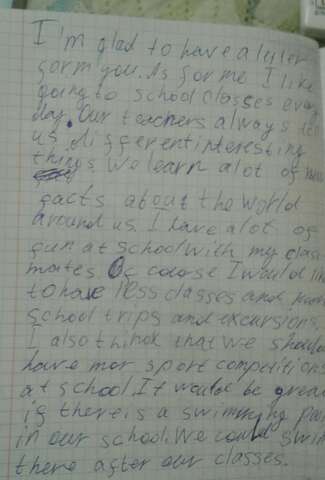 I'm glad to have a leter
form you. As for me I like
going to school classes every
day. Our teachers always tell
us different interesting
things We learn a lot of new
facts about the world
around us. I have a lot of
fun at school with my class
mates Of course I would like
to have less classes and more
school trips and excursions,
I also think that we should
have mor sport competitions
at school. It would be great
if there is a swimming pool
in our school. We could swim
there after our classes.